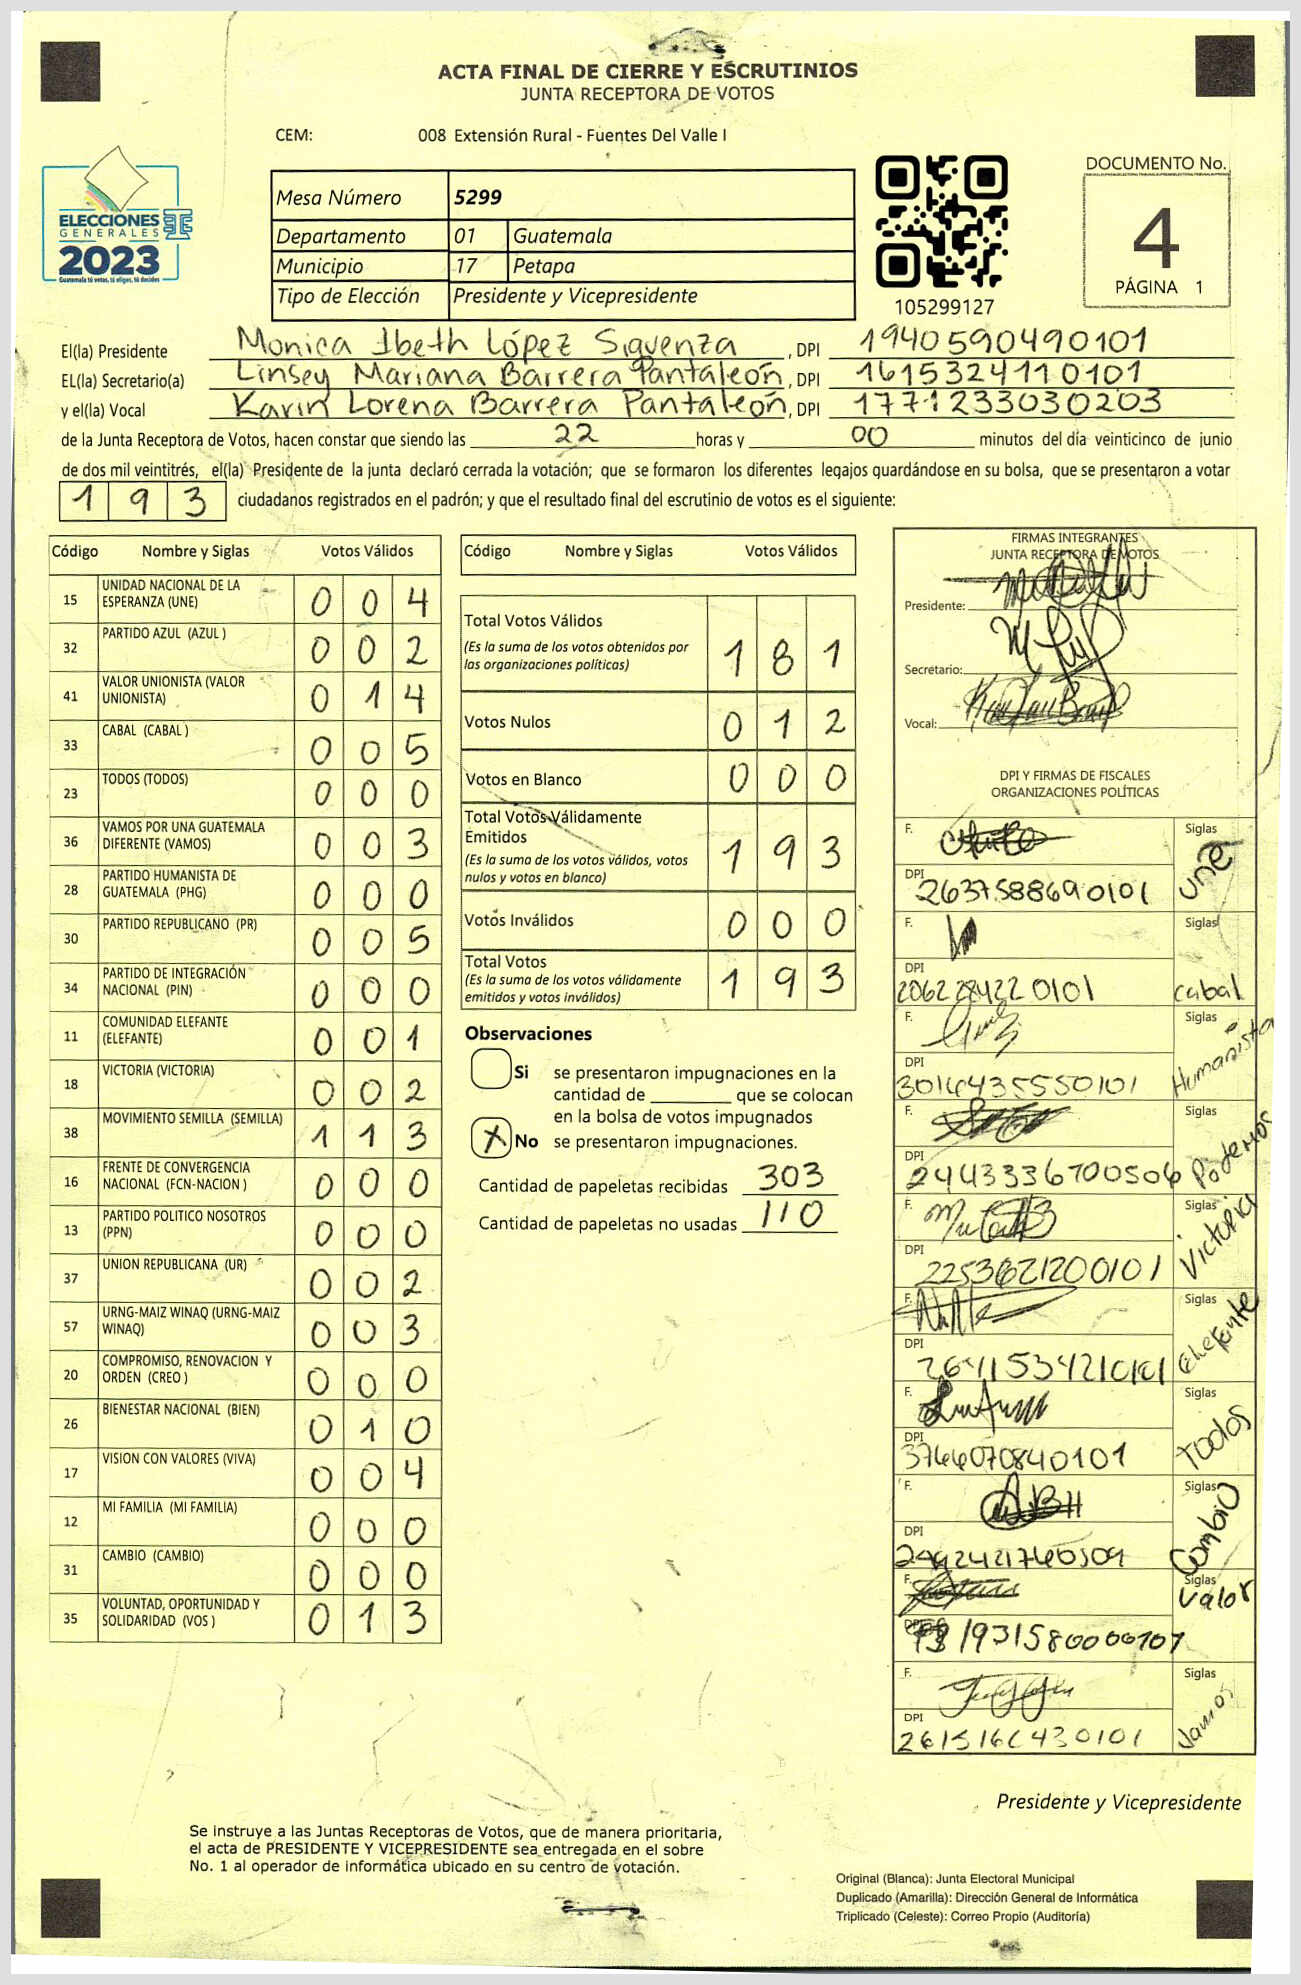 ACTA FINAL DE CIERRE Y ESCRUTINIOS
JUNTA RECEPTORA DE VOTOS
CEM: 008 Extensión Rural - Fuentes Del Valle I
ELECCIONES
GENERALES
2023
Guatemala tú votas, tú eliges, tú decides
Mesa Número 5299
Departamento 01 Guatemala
Municipio 17 Petapa
Tipo de Elección Presidente y Vicepresidente
105299127
DOCUMENTO No.
4
PÁGINA 1
El(la) Presidente Monica Ibeth López Siquenza, DPI 1940590490101
EL(la) Secretario(a) Linsey Mariana Barrera Pantaleón, DPI 1615324110101
y el(la) Vocal Karin Lorena Barrera Pantaleón, DPI 1771233030203
de la Junta Receptora de Votos, hacen constar que siendo las 22 horas y 00 minutos del día veinticinco de junio
de dos mil veintitrés, el(la) Presidente de la junta declaró cerrada la votación; que se formaron los diferentes legajos guardándose en su bolsa, que se presentaron a votar
193 ciudadanos registrados en el padrón; y que el resultado final del escrutinio de votos es el siguiente:
Código Nombre y Siglas Votos Válidos
15 UNIDAD NACIONAL DE LA ESPERANZA (UNE) 004
32 PARTIDO AZUL (AZUL ) 002
41 VALOR UNIONISTA (VALOR UNIONISTA) 014
33 CABAL (CABAL ) 005
23 TODOS (TODOS) 000
36 VAMOS POR UNA GUATEMALA DIFERENTE (VAMOS) 003
28 PARTIDO HUMANISTA DE GUATEMALA (PHG) 000
30 PARTIDO REPUBLICANO (PR) 005
34 PARTIDO DE INTEGRACIÓN NACIONAL (PIN) 000
11 COMUNIDAD ELEFANTE (ELEFANTE) 001
18 VICTORIA (VICTORIA) 002
38 MOVIMIENTO SEMILLA (SEMILLA) 113
16 FRENTE DE CONVERGENCIA NACIONAL (FCN-NACION ) 000
13 PARTIDO POLITICO NOSOTROS (PPN) 000
37 UNION REPUBLICANA (UR) 002
57 URNG-MAIZ WINAQ (URNG-MAIZ WINAQ) 003
20 COMPROMISO, RENOVACION Y ORDEN (CREO ) 000
26 BIENESTAR NACIONAL (BIEN) 010
17 VISION CON VALORES (VIVA) 004
12 MI FAMILIA (MI FAMILIA) 000
31 CAMBIO (CAMBIO) 000
35 VOLUNTAD, OPORTUNIDAD Y SOLIDARIDAD (VOS ) 013
Código Nombre y Siglas Votos Válidos
Total Votos Válidos 181
(Es la suma de los votos obtenidos por
las organizaciones políticas)
Votos Nulos 012
Votos en Blanco 000
Total Votos Válidamente
Emitidos 193
(Es la suma de los votos válidos, votos
nulos y votos en blanco)
Votos Inválidos 000
Total Votos 193
(Es la suma de los votos válidamente
emitidos y votos inválidos)
Observaciones
Si se presentaron impugnaciones en la
cantidad de ________ que se colocan
en la bolsa de votos impugnados
X No se presentaron impugnaciones.
Cantidad de papeletas recibidas 303
Cantidad de papeletas no usadas 110
FIRMAS INTEGRANTES
JUNTA RECEPTORA DE VOTOS
Presidente:
Secretario:
Vocal:
DPI Y FIRMAS DE FISCALES
ORGANIZACIONES POLÍTICAS
F. Siglas une
DPI 2637588690101
F. Siglas cabal
DPI 2062284220101
F. Siglas Humanista
DPI 3016435550101
F. Siglas Podemos
DPI 2443336700506
F. Siglas Victoria
DPI
F. Siglas Elefante
DPI 26411534210101
F. Siglas Todos
DPI 3766070840101
F. Siglas Cambio
DPI
F. Siglas Valor
DPI 1931580000101
F. Siglas Vamos
DPI
Presidente y Vicepresidente
Se instruye a las Juntas Receptoras de Votos, que de manera prioritaria,
el acta de PRESIDENTE Y VICEPRESIDENTE sea entregada en el sobre
No. 1 al operador de informática ubicado en su centro de votación.
Original (Blanca): Junta Electoral Municipal
Duplicado (Amarilla): Dirección General de Informática
Triplicado (Celeste): Correo Propio (Auditoría)